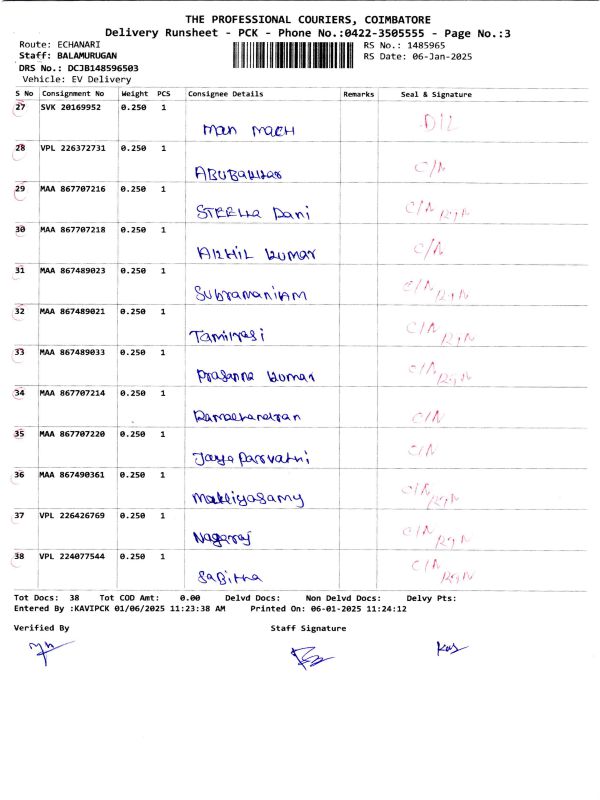 THE PROFESSIONAL COURIERS, COIMBATORE
Delivery Runsheet - PCK - Phone No.:0422-3505555 - Page No.:3
Route: ECHANARI RS No.: 1485965
Staff: BALAMURUGAN RS Date: 06-Jan-2025
DRS No.: DCJB148596503
Vehicle: EV Delivery
S No Consignment No Weight PCS Consignee Details Remarks Seal & Signature
27 SVK 20169952 0.250 1
Man MACH DIL
28 VPL 226372731 0.250 1
ABUBAkkar C/N
29 MAA 867707216 0.250 1
STEELLA Rani C/N
30 MAA 867707218 0.250 1
AKHIL kumar C/N
31 MAA 867489023 0.250 1
SubramaniAM C/N
32 MAA 867489021 0.250 1
Tamilrasi C/N
33 MAA 867489033 0.250 1
Prasanna kumar C/N
34 MAA 867707214 0.250 1
Ramachandran C/N
35 MAA 867707220 0.250 1
Jaya Parvathi C/N
36 MAA 867490361 0.250 1
C/N
37 VPL 226426769 0.250 1
Nagaraj C/N
38 VPL 224077544 0.250 1
Sabitha C/N
Tot Docs: 38 Tot COD Amt: 0.00 Delvd Docs: Non Delvd Docs: Delvy Pts:
Entered By :KAVIPCK 01/06/2025 11:23:38 AM Printed On: 06-01-2025 11:24:12
Verified By Staff Signature